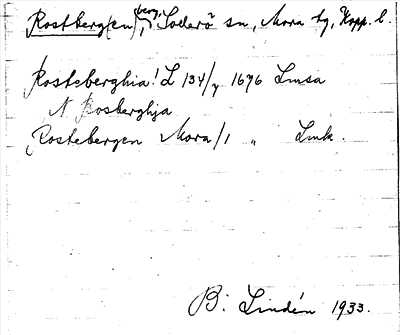 Rostberg(en), berg, Sollerö sn, Mora tg, Kopp. l.
Rosteberghia! L 134/7 1696 Lmsa
N Rosberghja
Rostebergen Mora/1 " Lmk.
B. Lindén 1933.